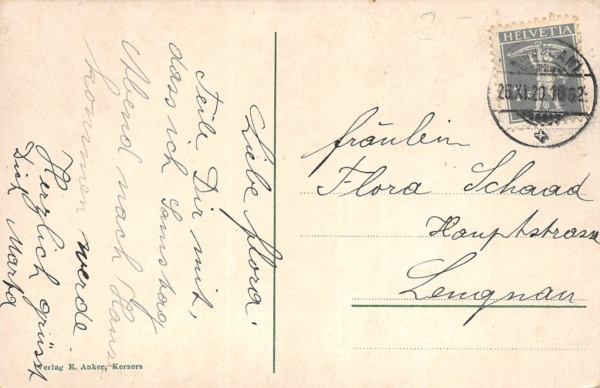 Liebe Flora.
Teile Dir mit,
dass ich Samstag
Abend nach Haus
kommen werde.
Herzlich grüsst
Dich Marta
HELVETIA
26.XI.20.18
fräulein
Flora Schaad
Hauptstrasse
Lengnau
Verlag E. Anker, Kerzers